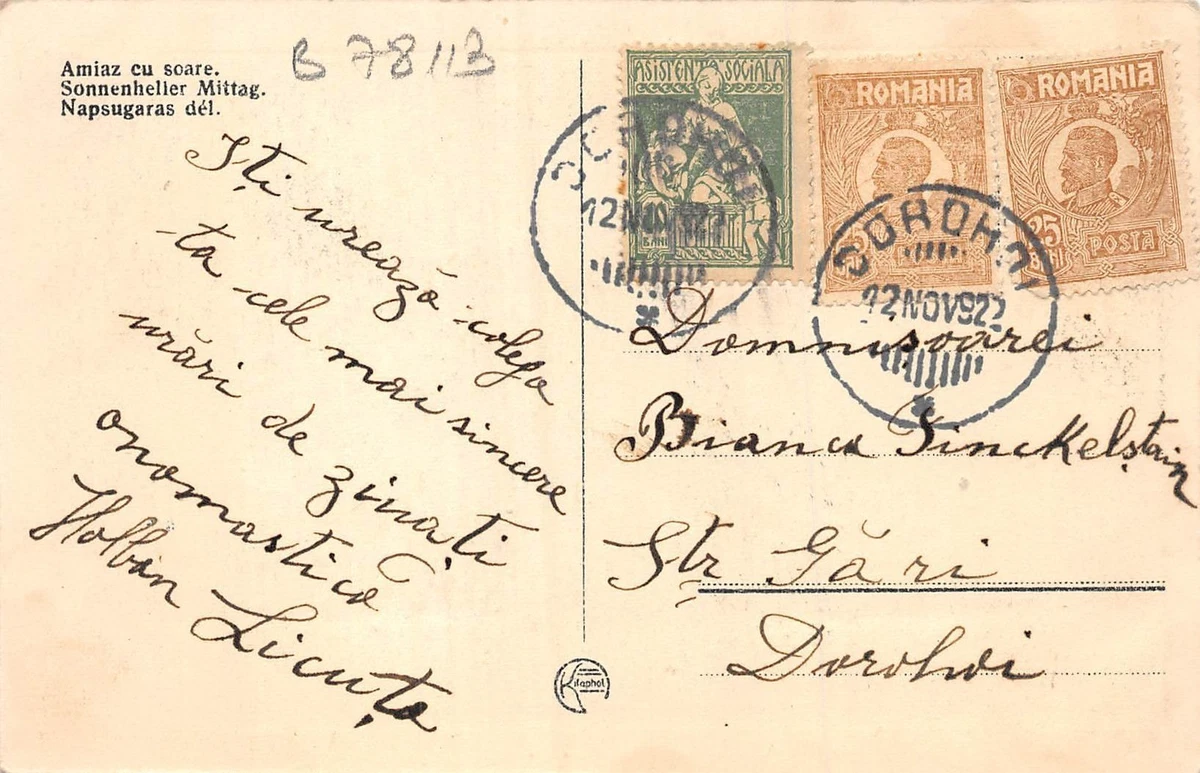 B 78113
Amiaz cu soare.
Sonnenheller Mittag.
Napsugaras dél.
Iți urează colega
ta cele mai sincere
urări de zina ți
onomastică
Holban Licuța
ASISTENȚA SOCIALA
BANI
ROMANIA
25
ROMANIA
25 BANI POSTA
DOROHOI
12 NOV 922
DOROHOI
12 NOV 922
Domnișoarei
Bianca Finckelștain
Str Gări
Dorohoi
Kilophot